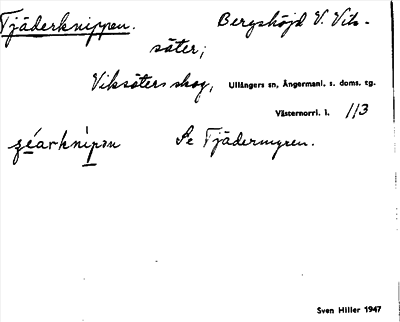 Tjäderknippen. Bergshöjd V. Vik-
säter;
Viksäters skog, Ullångers sn, Ångermanl. s. doms. tg.
Västernorrl. l. 113
Se Tjädermyren.
Sven Hiller 1947